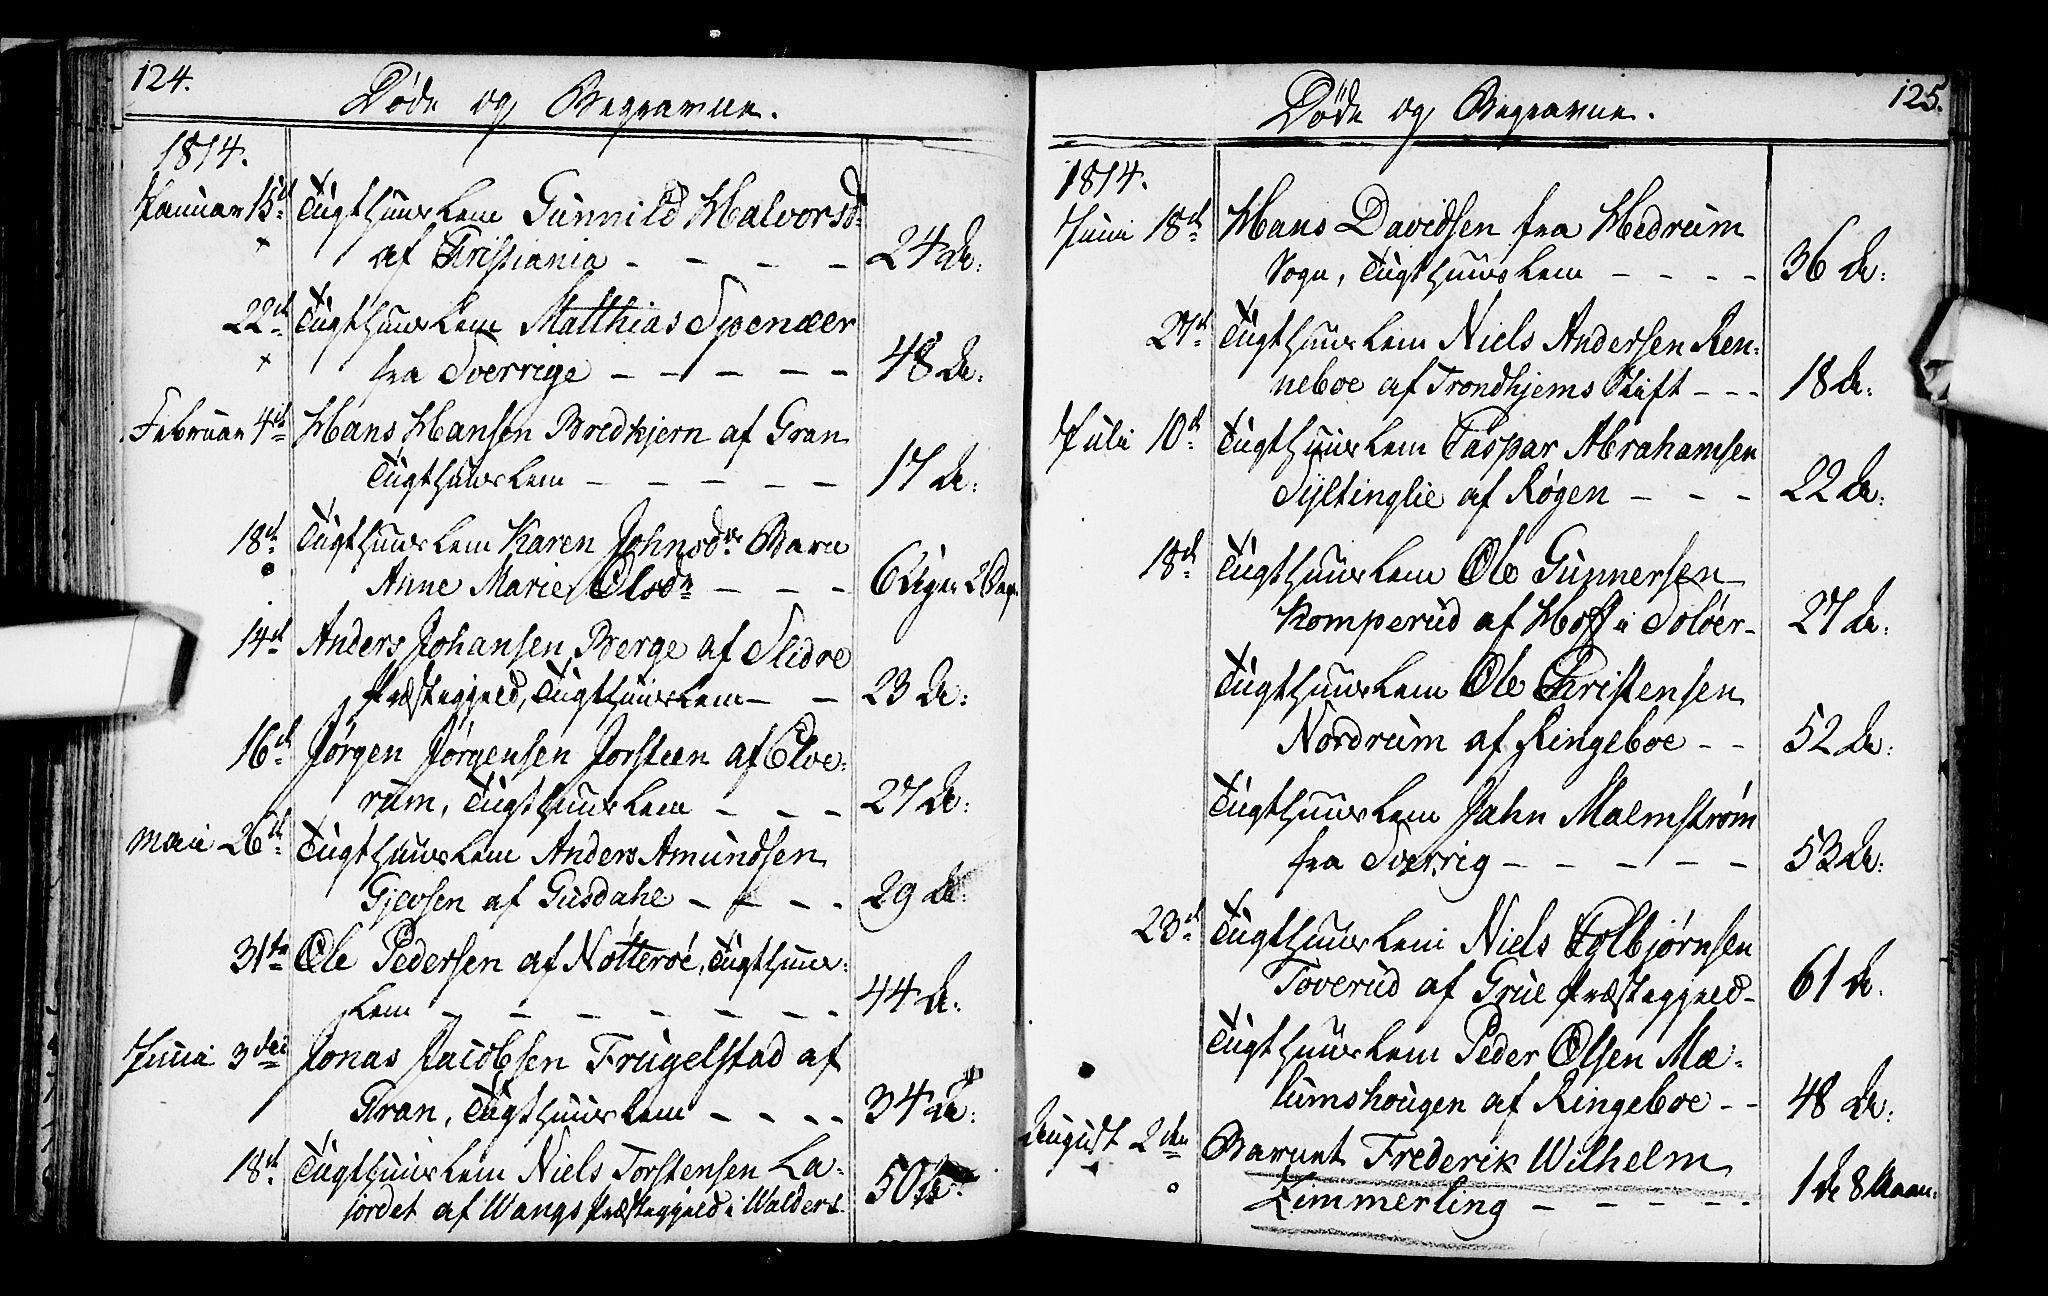 124.
Døde og Begravne.
1814.
Januar 15d. Tugthuus Lem Gunnild Halvorsd.
af Christiania - - - - 24 Ar:
22d. Tugthuus Lem Matthias Spencer
fra Sverrige - - - - - 48 Ar:
Februar 4de Hans Hansen Bredkjern af Gran
Tugthuus Lem - - - - - 17 Ar:
18d. Tugthuus Lem Karen Johnsdr Barn
Anne Marie Olsdr - - - 6 Uger 2 Dage
14d. Anders Johansen Berge af Slidre
Præstegjeld, Tugthuus Lem - - 23 Ar:
16d. Jørgen Jørgensen Jorsteen af Elve:
rum, Tugthuus Lem - - - 27 Ar:
Maii 26d. Tugthuus Lem Anders Amundsen
Gjevsen af Gusdahl - - - - 29 Ar:
31te Ole Pedersen af Nøtterøe, Tugthuus:
Lem - - - - - - 44 Ar:
Junii 3die Jonas Jacobsen Frugelstad af
Gran, Tugthuus Lem - - - - 34 Ar:
18d. Tugthuus Lem Niels Torstensen La-
jordet af Wangs Præstegjeld i Walders 50 Ar:
125.
Døde og Begravne.
1814.
Junii 18d. Hans Davidsen fra Hedrum
Sogn, Tugthuus Lem - - - - 36 Ar:
27d. Tugthuus Lem Niels Andersen Ren:
neboe af Trondhjems Stift - - - 18 Ar:
Juli 10d. Tugthuus Lem Caspar Abrahamsen
Syltinglie af Røgen - - - 22 Ar:
18d. Tugthuus Lem Ole Gunnersen
Komperud af Hoff i Soløer - 27 Ar:
Tugthuus Lem Ole Christensen
Nordrum af Ringeboe - - 52 Ar:
Tugthuus Lem Jahn Malmstrøm
fra Sverrig - - - - - 53 Ar:
23d. Tugthuus Lem Niels Colbjørnsen
Toverud af Grue Præstegjeld - 61 Ar.
Tugthuus Lem Peder Olsen Mæ-
lumshougen af Ringeboe - - 48 Ar:
August 2den Barnet Frederik Wilhelm
Zimmerling - - - - - 1 Ar 8 Maan: